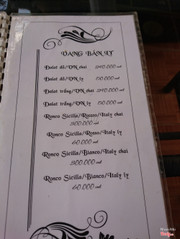 VANG BÁN LY
Dalat đỏ/VN, chai
Dalat đỏ/VN, ly
Dalat trắng/VN, chai
Dalat trắng/VN, ly
Rosso Sicilia/Rosso/Italy chai
300.000 vnđ
Rosso Sicilia/Rosso/Italy ly
60.000 vnđ
Rosso Sicilia/Bianco/Italy chai
300.000 vnđ
Rosso Sicilia/Bianco/Italy ly
60.000 vnđ